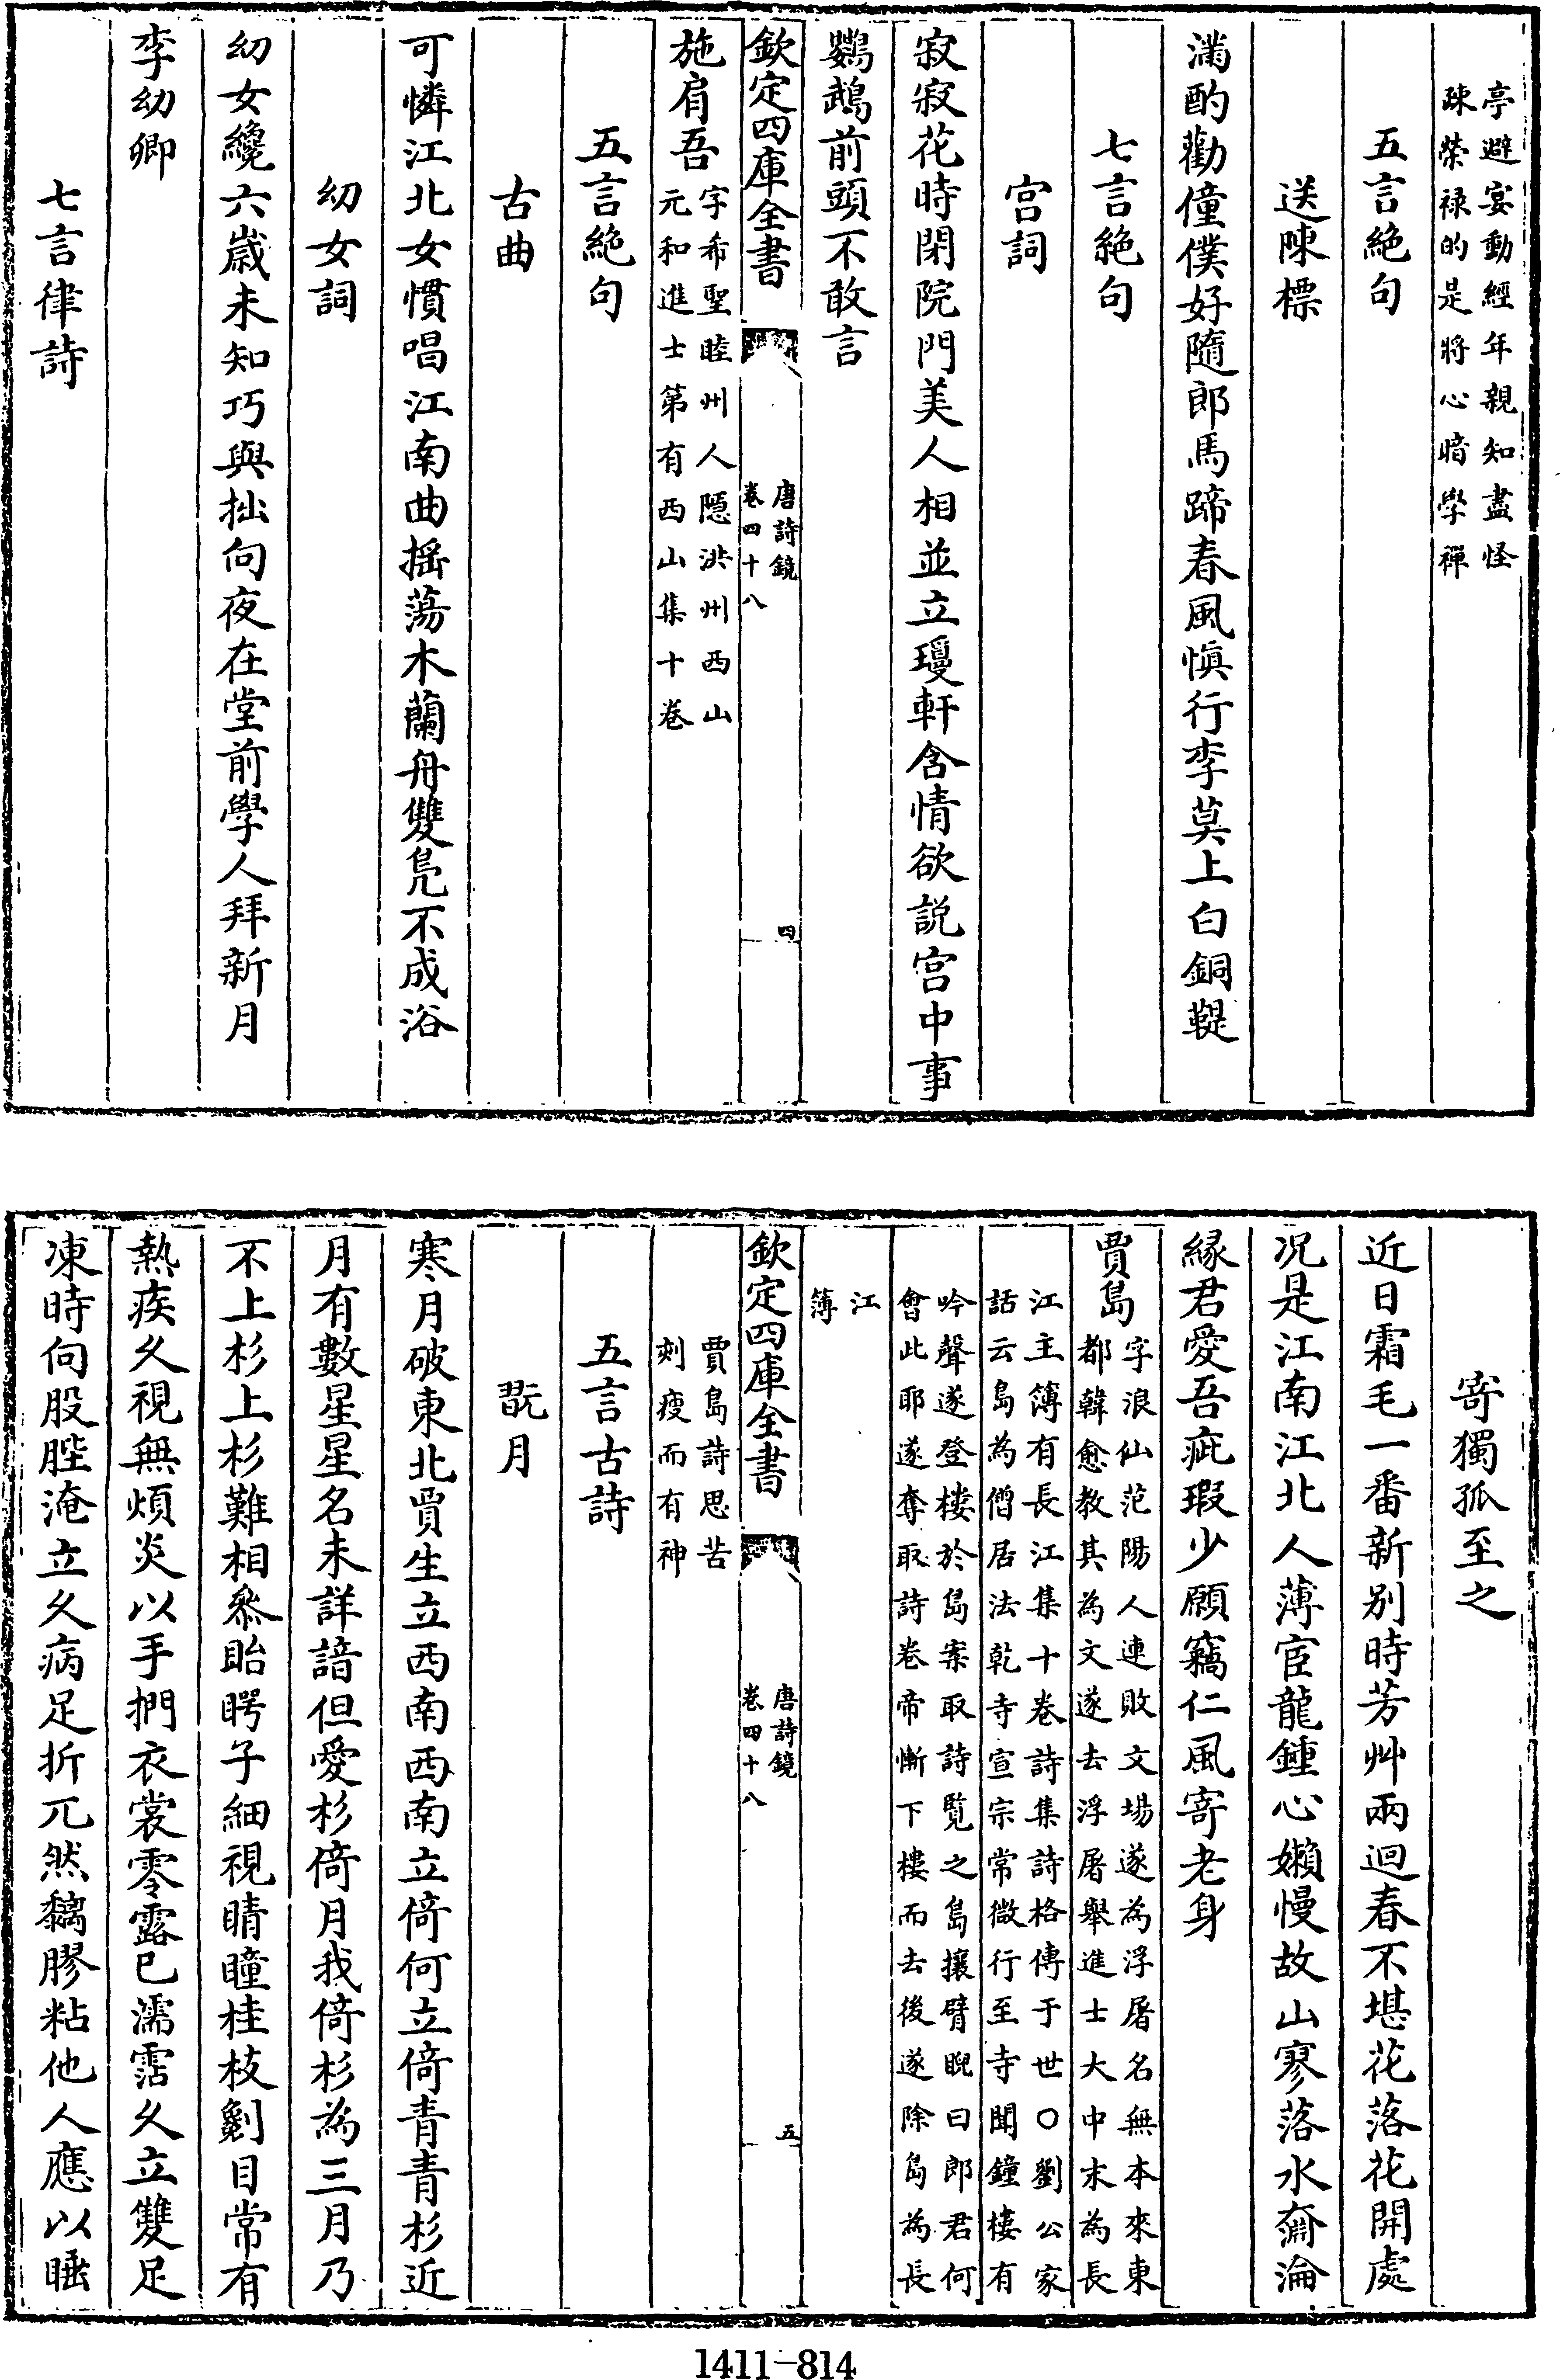 亭避宴動經年親知盡怪
疎榮禄的是將心暗學禪
五言絶句
送陳標
滿酌勸僮僕好隨郎馬蹄春風慎行李莫上白銅鞮
七言絶句
宫詞
寂寂花時閑院門美人相並立瓊軒含情欲説宫中事
鸚鵡前頭不敢言
欽定四庫全書
唐詩鏡
卷四十八
四
施肩吾
字希聖睦州人隱洪州西山
元和進士第有西山集十卷
五言絶句
古曲
可憐江北女慣唱江南曲揺蕩木蘭舟雙鳬不成浴
幼女詞
幼女纔六嵗未知巧與拙向夜在堂前學人拜新月
李幼卿
七言律詩
寄獨孤至之
近日霜毛一番新别時芳艸兩迴春不堪花落花開處
况是江南江北人薄宦龍鍾心嬾慢故山寥落水奫淪
緣君愛吾疵瑕少願竊仁風寄老身
賈島
字浪仙范陽人連敗文場遂為浮屠名無本來東
都韓愈教其為文遂去浮屠舉進士大中末為長
江主簿有長江集十卷詩集詩格傳于世〇劉公家
話云島為僧居法乾寺宣宗常微行至寺聞鐘樓有
吟聲遂登樓於島案取詩覽之島攘臂睨曰郎君何
會此耶遂奪取詩卷帝慚下樓而去後遂除島為長
江
簿
欽定四庫全書
唐詩鏡
卷四十八
五
賈島詩思苦
刻瘦而有神
五言古詩
翫月
寒月破東北賈生立西南西南立倚何立倚青青杉近
月有數星星名未詳諳但愛杉倚月我倚杉為三月乃
不上杉上杉難相叅眙䁎子細視睛瞳桂枝劖目常有
熱疾久視無煩炎以手捫衣裳零露已濡霑久立雙足
凍時向股䏶淹立久病足折兀然黐膠粘他人應以睡
1411-814